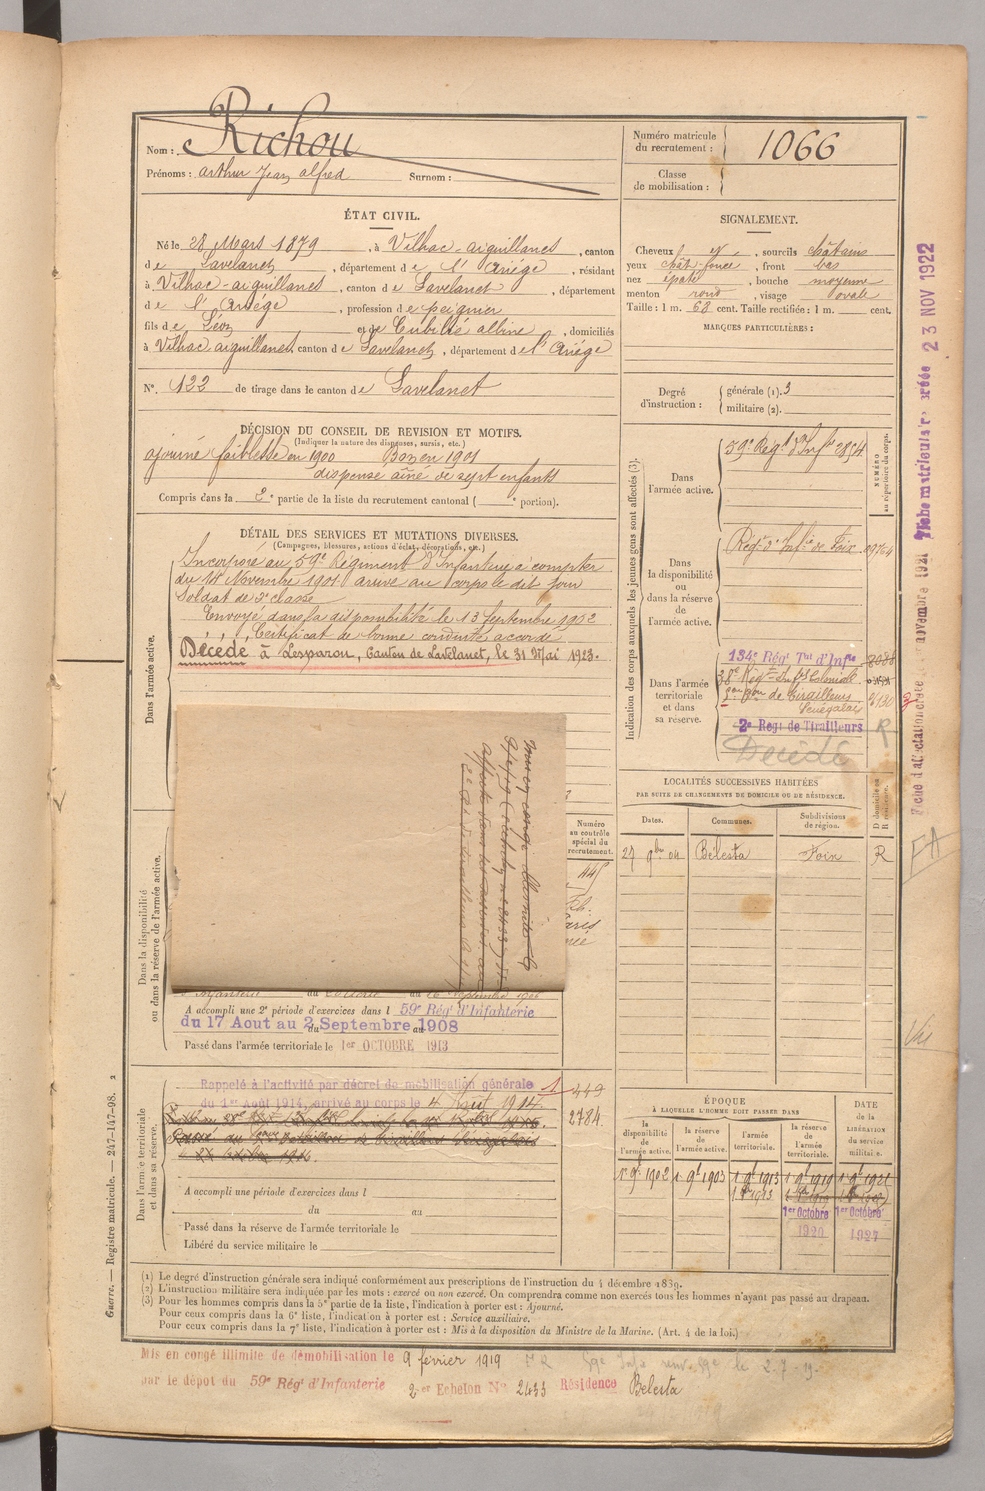 Nom : Richou
Prénoms : arthur Jean alfred Surnom :
Numéro matricule du recrutement : 1066
Classe de mobilisation :
ÉTAT CIVIL.
Né le 28 Mars 1879, à Vilhac-aiguillanes, canton
de Lavelanet, département de l'Ariége, résidant
à Vilhac-aiguillanes, canton de Lavelanet, département
de l'Ariége, profession de peignier
fils de Léon et de Cubillé albine, domiciliés
à Vilhac aiguillanes, canton de Lavelanet, département de l'Ariége
N°. 122 de tirage dans le canton de Lavelanet
DÉCISION DU CONSEIL DE REVISION ET MOTIFS.
(Indiquer la nature des dispenses, sursis, etc.)
ajourné faiblesse en 1900 Bon en 1901
dispensé aîné de sept enfants
Compris dans la 2e partie de la liste du recrutement cantonal ( e portion).
SIGNALEMENT.
Cheveux, sourcils châtains
yeux chât-foncé, front bas
nez épaté, bouche moyenne
menton rond, visage ovale
Taille : 1 m. 68 cent. Taille rectifiée : 1 m. cent.
MARQUES PARTICULIÈRES :
Degré d'instruction : générale (1). 3
militaire (2).
DÉTAIL DES SERVICES ET MUTATIONS DIVERSES.
(Campagnes, blessures, actions d'éclat, décorations, etc.)
Dans l'armée active.
Incorporé au 59e Régiment d'Infanterie à compter
du 14 Novembre 1901 arrivé au corps le dit jour
Soldat de 2e classe
Envoyé dans la disponibilité le 13 Septembre 1902
Certificat de bonne conduite accordé
Décédé à Lesparou, Canton de Lavelanet, le 31 Mai 1923.
Indication des corps auxquels les jeunes gens sont affectés (3).
NUMÉRO au répertoire du corps.
Dans l'armée active. 59e Régt d'Infie 2854
Dans la disponibilité ou dans la réserve de l'armée active. Régt d'Infie de Foix
Dans l'armée territoriale et dans sa réserve.
134e Régt Tal d'Infie
38e Régt Infie Coloniale
Bon de tirailleurs
Sénégalais
2e Régt de Tirailleurs R
Décédé
Fiche matriculaire créée 23 NOV 1922
mis en congé illimité le
Numéro au contrôle spécial du recrutement.
Dans la disponibilité ou dans la réserve de l'armée active.
A accompli une 2e période d'exercices dans l 59e Régt d'Infanterie
du 17 Aout au 2 Septembre 1908
Passé dans l'armée territoriale le 1er OCTOBRE 1913
LOCALITÉS SUCCESSIVES HABITÉES
PAR SUITE DE CHANGEMENTS DE DOMICILE OU DE RÉSIDENCE.
Dates. Communes. Subdivisions de région. D domicile ou R résidence.
27 9bre 04 Bélesta Foix R
Dans l'armée territoriale et dans sa réserve.
Rappelé à l'activité par décret de mobilisation générale
du 1er Août 1914, arrivé au corps le 4 août 1914. 449
2784
A accompli une période d'exercices dans l
du au
Passé dans la réserve de l'armée territoriale le
Libéré du service militaire le
ÉPOQUE
À LAQUELLE L'HOMME DOIT PASSER DANS
la disponibilité de l'armée active. la réserve de l'armée active. l'armée territoriale. la réserve de l'armée territoriale.
DATE de la LIBÉRATION du service militaire.
1902 1903 1913 1919 1921
1er Octobre 1er Octobre
1920 1927
(1) Le degré d'instruction générale sera indiqué conformément aux prescriptions de l'instruction du 4 décembre 1889.
(2) L'instruction militaire sera indiquée par les mots : exercé ou non exercé. On comprendra comme non exercés tous les hommes n'ayant pas passé au drapeau.
(3) Pour les hommes compris dans la 5e partie de la liste, l'indication à porter est : Ajourné.
Pour ceux compris dans la 6e liste, l'indication à porter est : Service auxiliaire.
Pour ceux compris dans la 7e liste, l'indication à porter est : Mis à la disposition du Ministre de la Marine. (Art. 4 de la loi.)
Guerre. — Registre matricule. — 247-147-98. 2
Mis en congé illimité de démobilisation le 9 février 1919
par le dépôt du 59e Régt d'Infanterie 2er Echelon N° 2433 Résidence Belesta